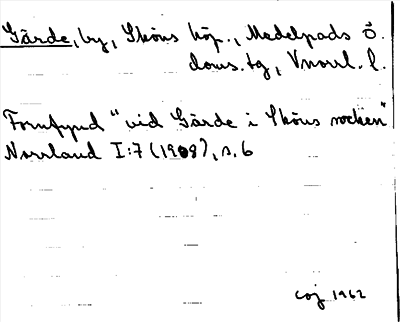 Gärde, by, Sköns köp., Medelpads ö.
doms.tg, Vnorrl. l.
Fornfynd "vid Gärde i Sköns socken"
Norrland I:7 (1908), s. 6
1962